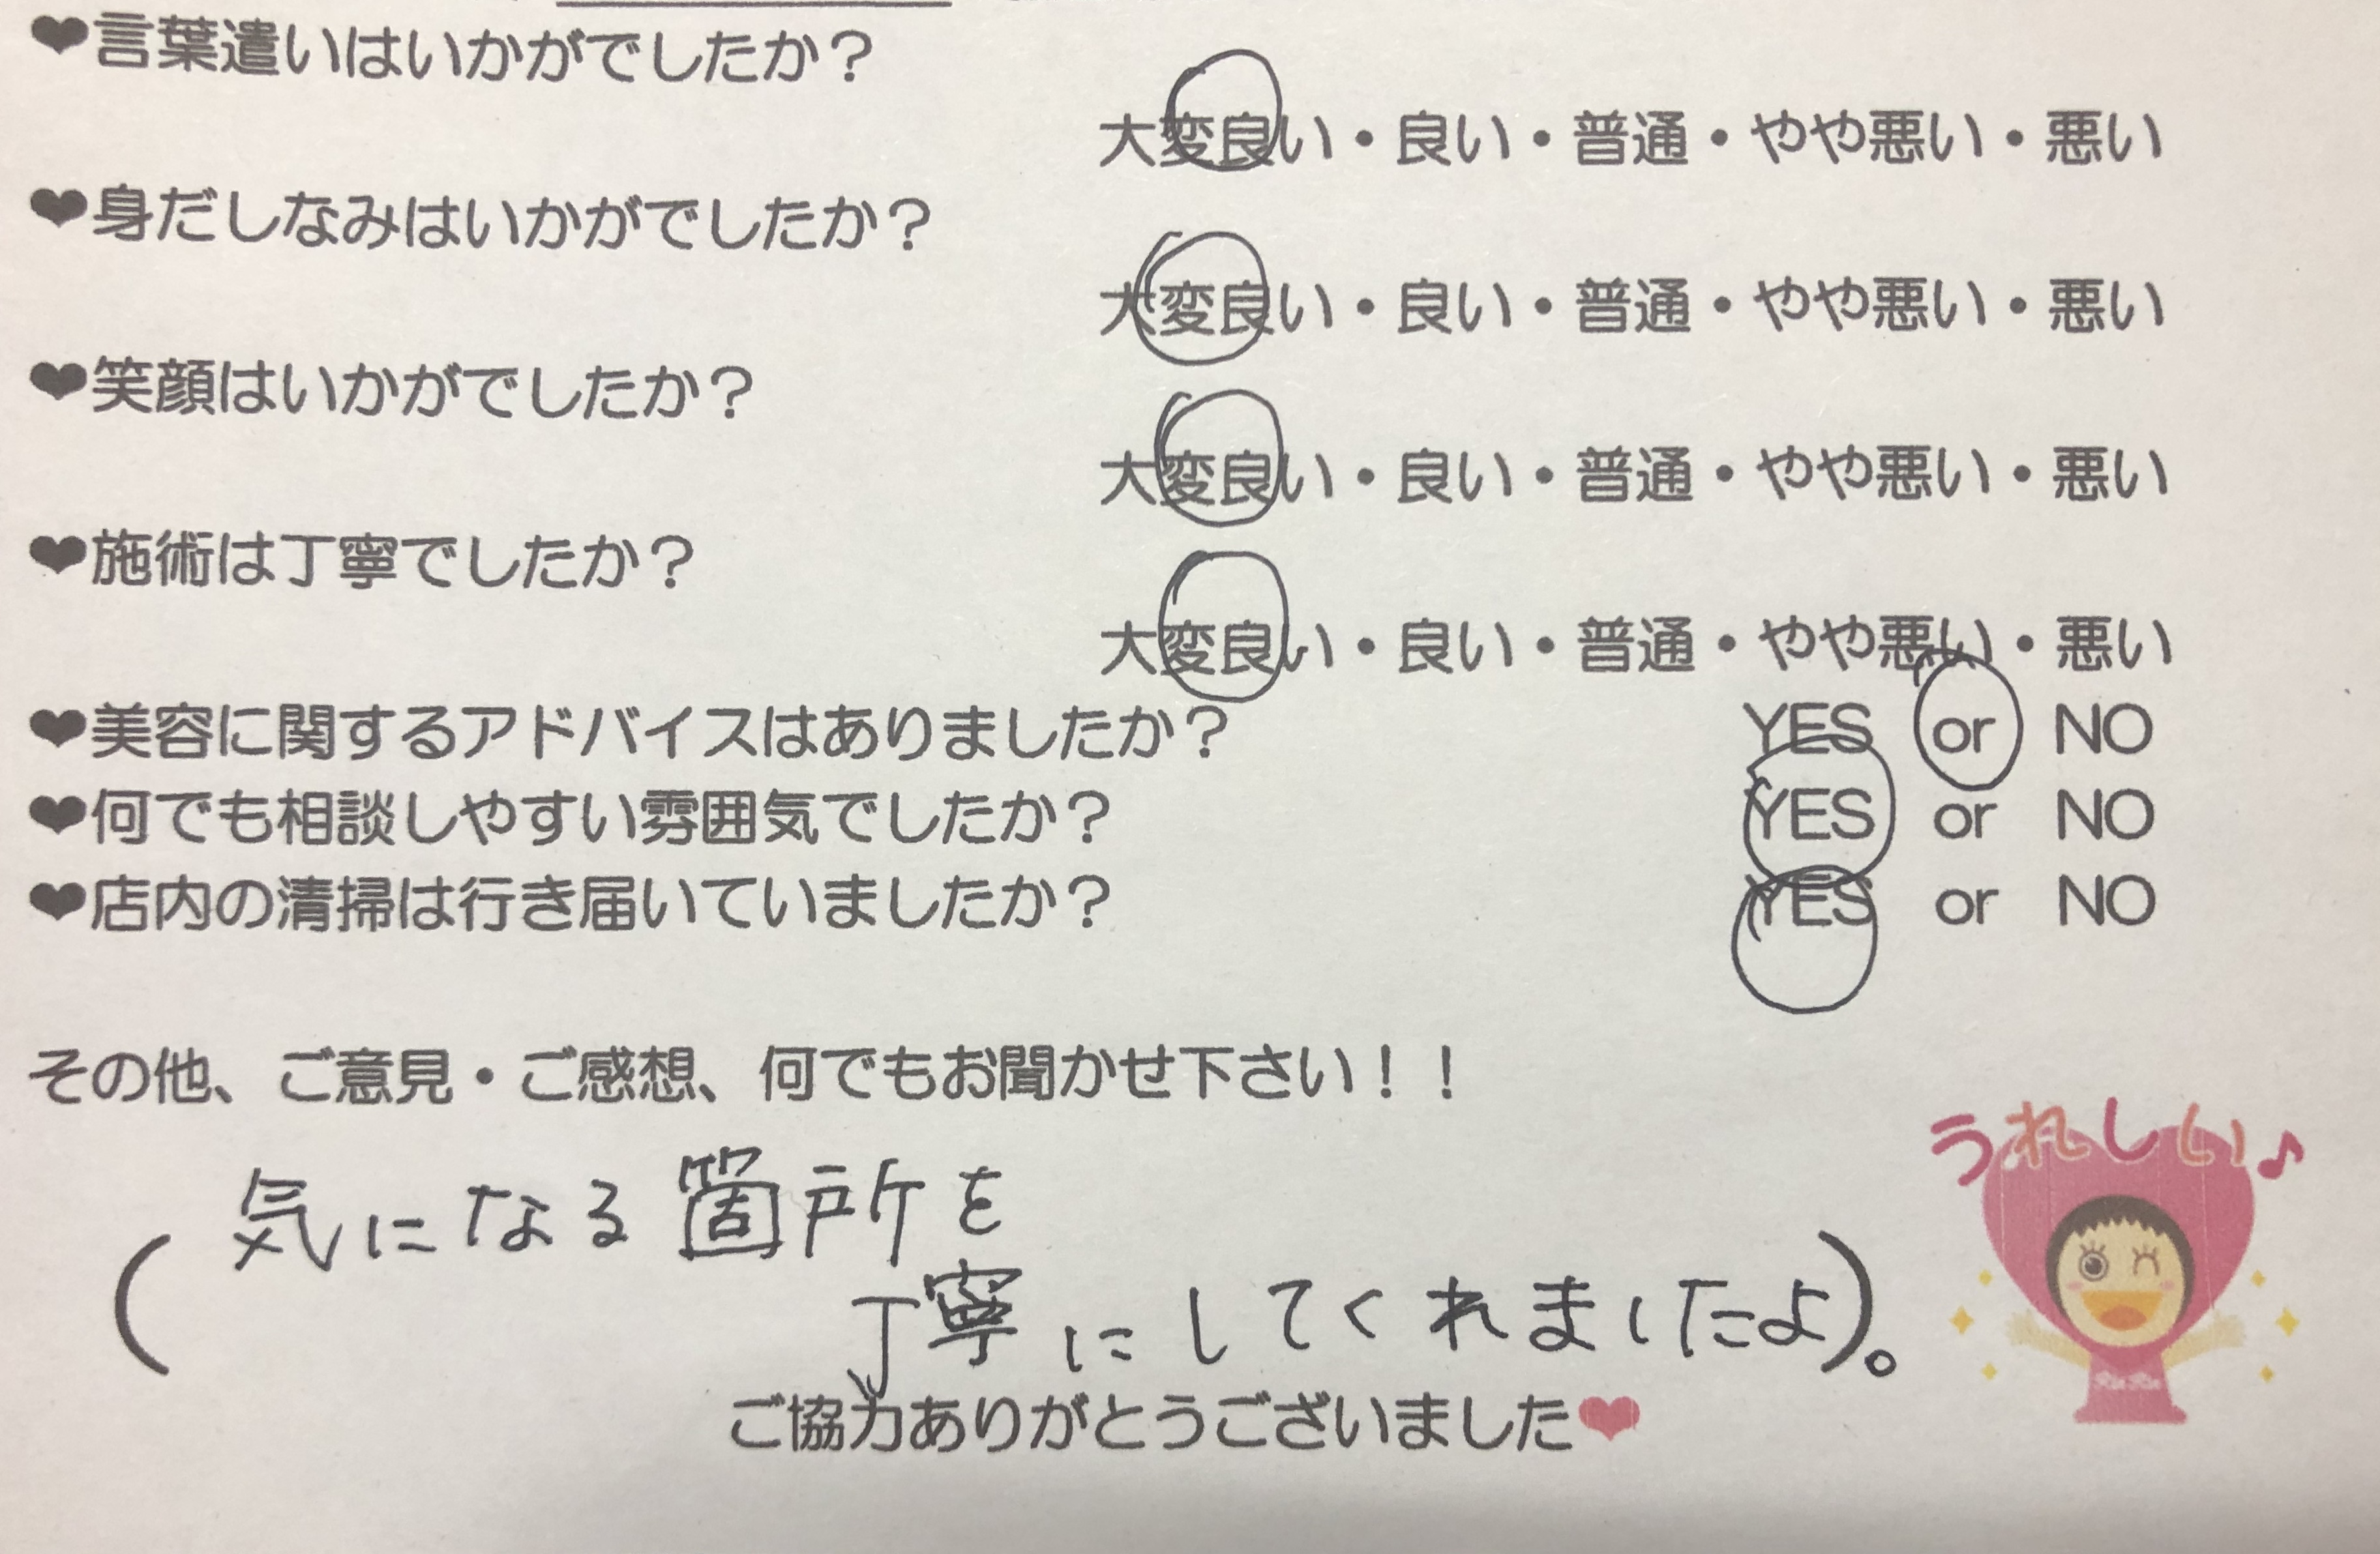 ❤言葉遣いはいかがでしたか？
大変良い・良い・普通・やや悪い・悪い
❤身だしなみはいかがでしたか？
大変良い・良い・普通・やや悪い・悪い
❤笑顔はいかがでしたか？
大変良い・良い・普通・やや悪い・悪い
❤施術は丁寧でしたか？
大変良い・良い・普通・やや悪い・悪い
❤美容に関するアドバイスはありましたか？ YES or NO
❤何でも相談しやすい雰囲気でしたか？ YES or NO
❤店内の清掃は行き届いていましたか？ YES or NO
その他、ご意見・ご感想、何でもお聞かせ下さい！！
うれしい♪
(気になる箇所を
丁寧にしてくれましたよ)。
RinRin
ご協力ありがとうございました❤